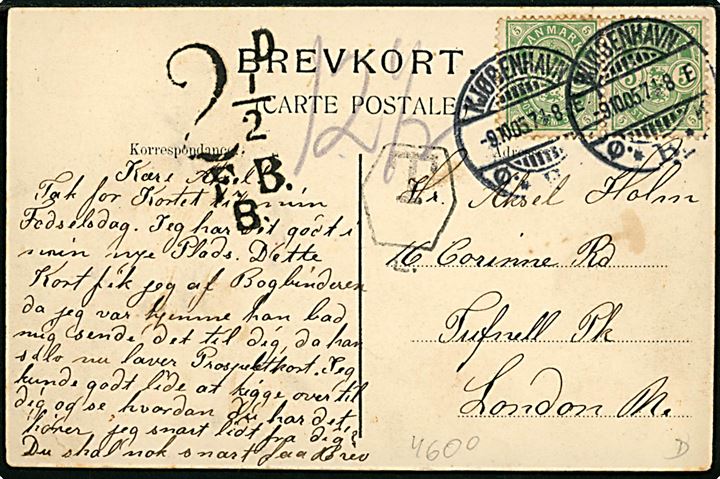 BREVKORT.
CARTE POSTALE
Korrespondance.
DANMARK
5
5
KJØBENHAVN
-9.10.05. 7¼-8 E
Ø. * B.
KJØBENHAVN
-9.10.05. 7¼-8 E
Ø. * B.
D
1
2
F.B.
B.
T
L
12½
Kære Aksel
Tak for Kortet til min
Fødselsdag. Jeg har det godt i
min nye Plads. Dette
Kort fik jeg af Bogbinderen
da jeg var hjemme han bad
mig sende det til dig, da han
selv nu laver Prospektkort. Jeg
kunde godt lide at kigge over til
dig og se hvordan du har det,
hører jeg snart lidt fra dig?
Du skal nok snart faa Brev
Hr. Aksel Holm
16 Corinne Rd
Tufnell Pk
London N.
4600
D